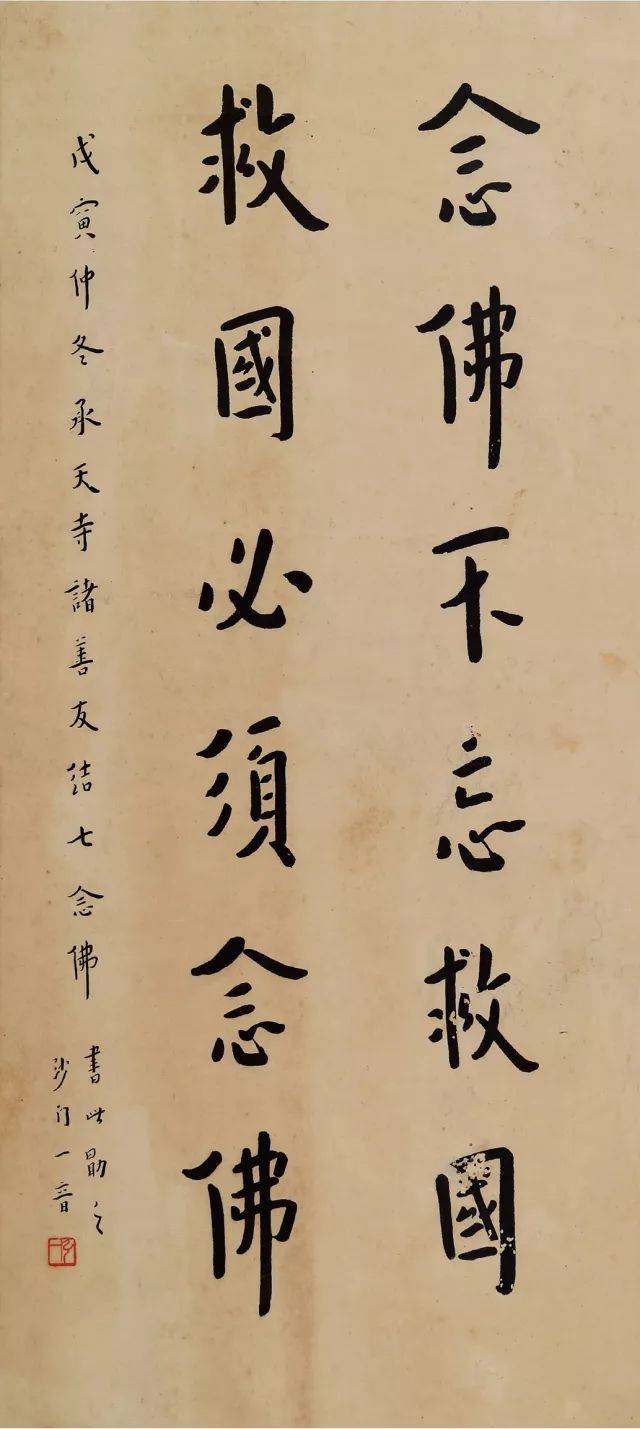 念佛不忘救國
救國必須念佛
戊寅仲冬承天寺諸善友结七念佛
書此勗之
沙门一音